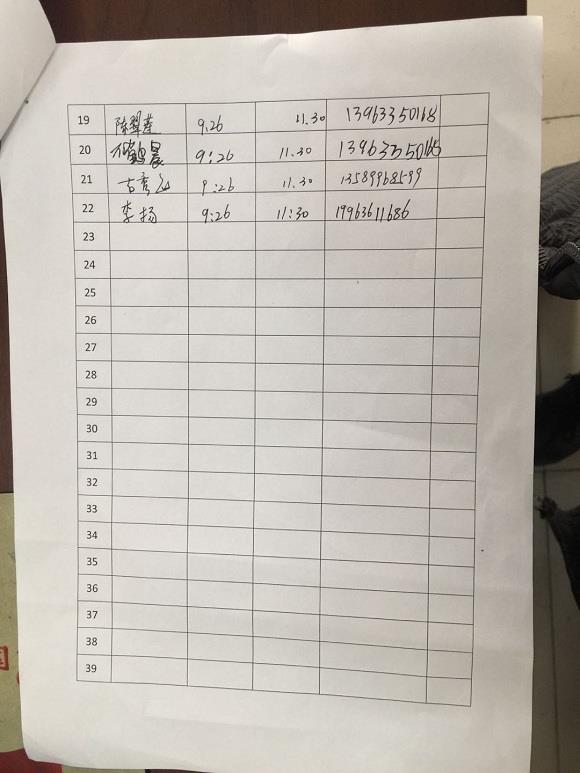 19 陈翠莲 9:26 11.30 13963350168
20 晨 9:26 11.30 13963350165
21 古秀 9:26 11.30 13589968599
22 李扬 9:26 11:30 19963611686
23
24
25
26
27
28
29
30
31
32
33
34
35
36
37
38
39